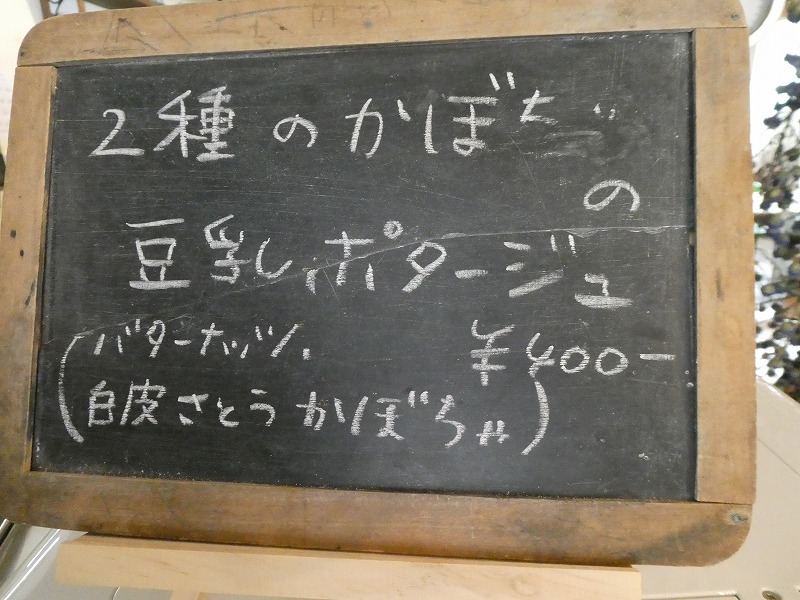 2種のかぼち
の
豆乳ポタージュ
(バターナッツ、
¥400-
白皮さとうかぼちゃ)